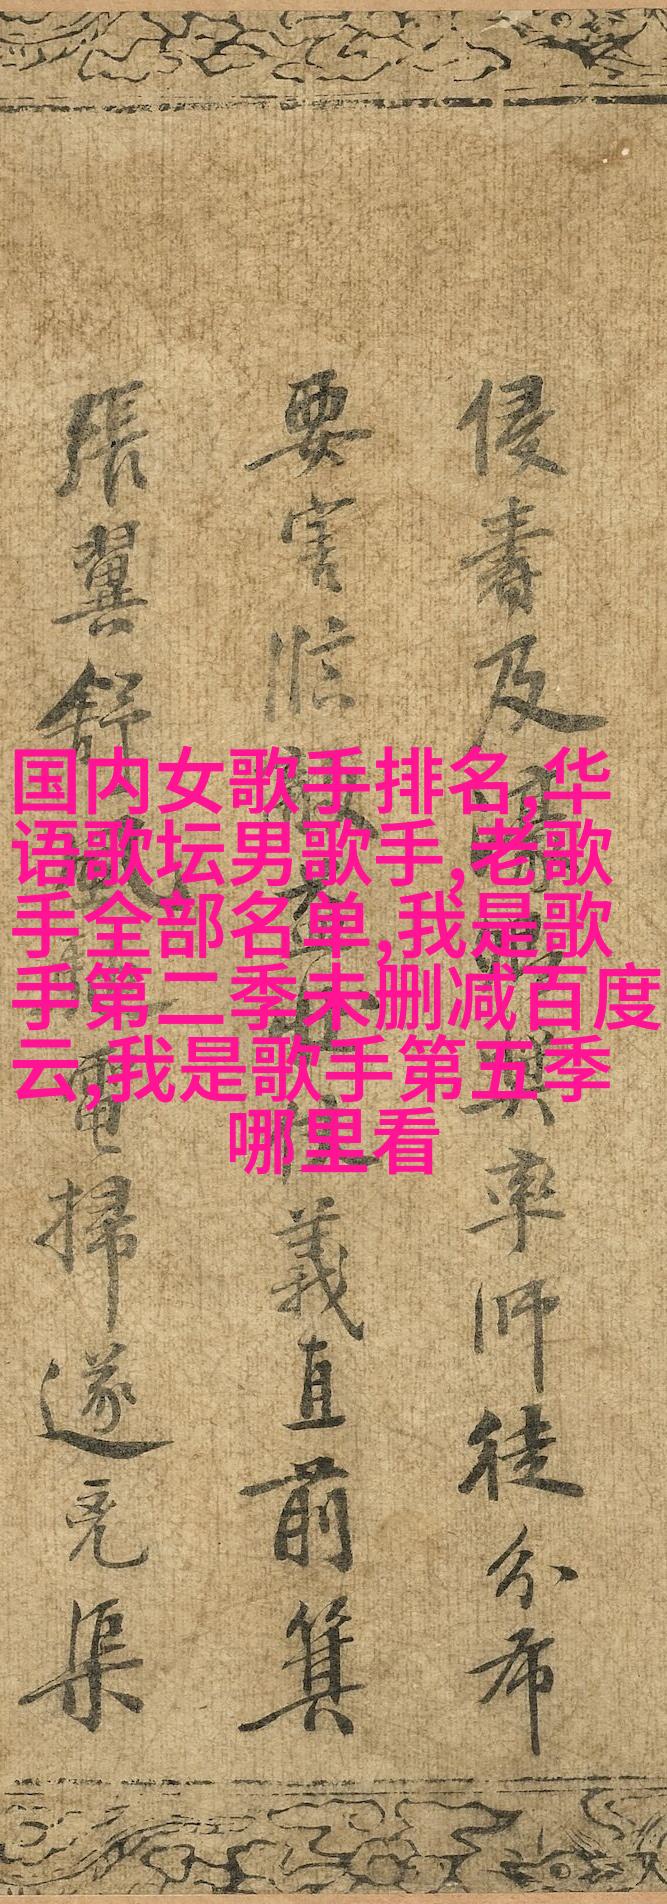 侵書及
率師徒分布
要害臨
義直前箕
張翼舒
電掃遂
渠
国内女歌手排名,华
语歌坛男歌手,老歌
手全部名单,我是歌
手第二季未删减百度
云,我是歌手第五季
哪里看